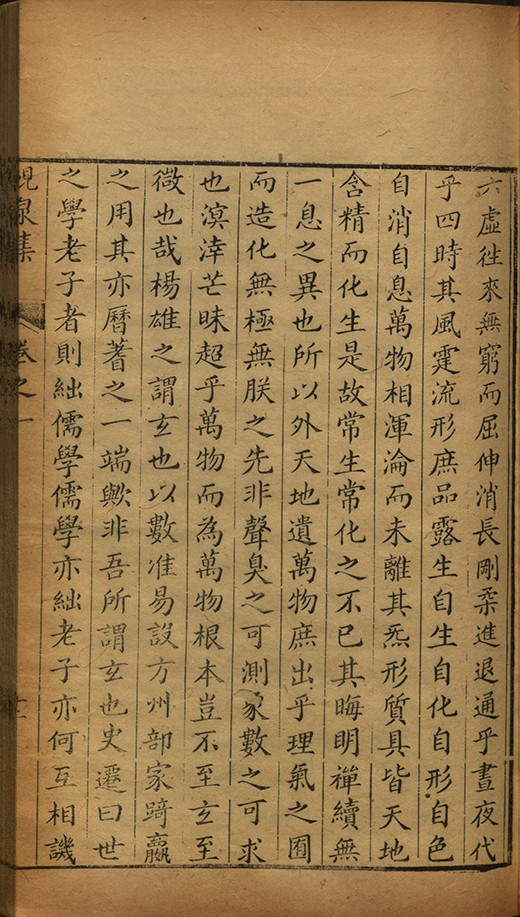 六虛往來無窮而屈伸消長剛柔進退通乎晝夜代
乎四時其風霆流形庶品露生自生自化自形自色
自消自息萬物相渾淪而未離其炁形質具皆天地
含精而化生是故常生常化之不已其晦明禪續無
一息之異也所以外天地遺萬物庶出乎理氣之囿
而造化無極無朕之先非聲臭之可測象數之可求
也溟涬芒昧超乎萬物而為萬物根本豈不至玄至
微也哉楊雄之謂玄也以數准易設方州部家踦嬴
之用其亦曆蓍之一端歟非吾所謂玄也史遷曰世
之學老子者則絀儒學儒學亦絀老子亦何互相譏
峴泉集 卷之一